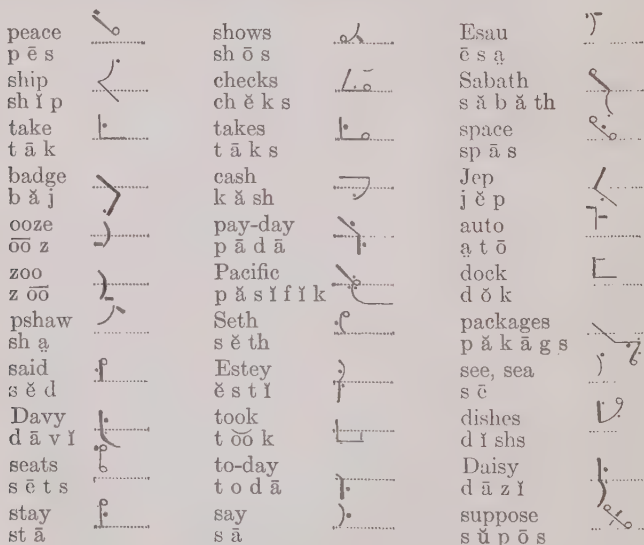 peace
p ē s
ship
sh ĭ p
take
t ā k
badge
b ă j
ooze
o͞o z
zoo
z o͞o
pshaw
sh a̤
said
s ĕ d
Davy
d ā v ĭ
seats
s ē t s
stay
st ā
shows
sh ō s
checks
ch ĕ k s
takes
t ā k s
cash
k ă sh
pay-day
p ā d ā
Pacific
p ă s ĭ f ĭ k
Seth
s ĕ th
Estey
ĕ s t ĭ
took
t o͝o k
to-day
t o d ā
say
s ā
Esau
ē s a̤
Sabath
s ă b ă th
space
sp ā s
Jep
j ĕ p
auto
a̤ t ō
dock
d ŏ k
packages
p ă k ā g s
see, sea
s ē
dishes
d ĭ shs
Daisy
d ā z ĭ
suppose
s ŭ p ō s